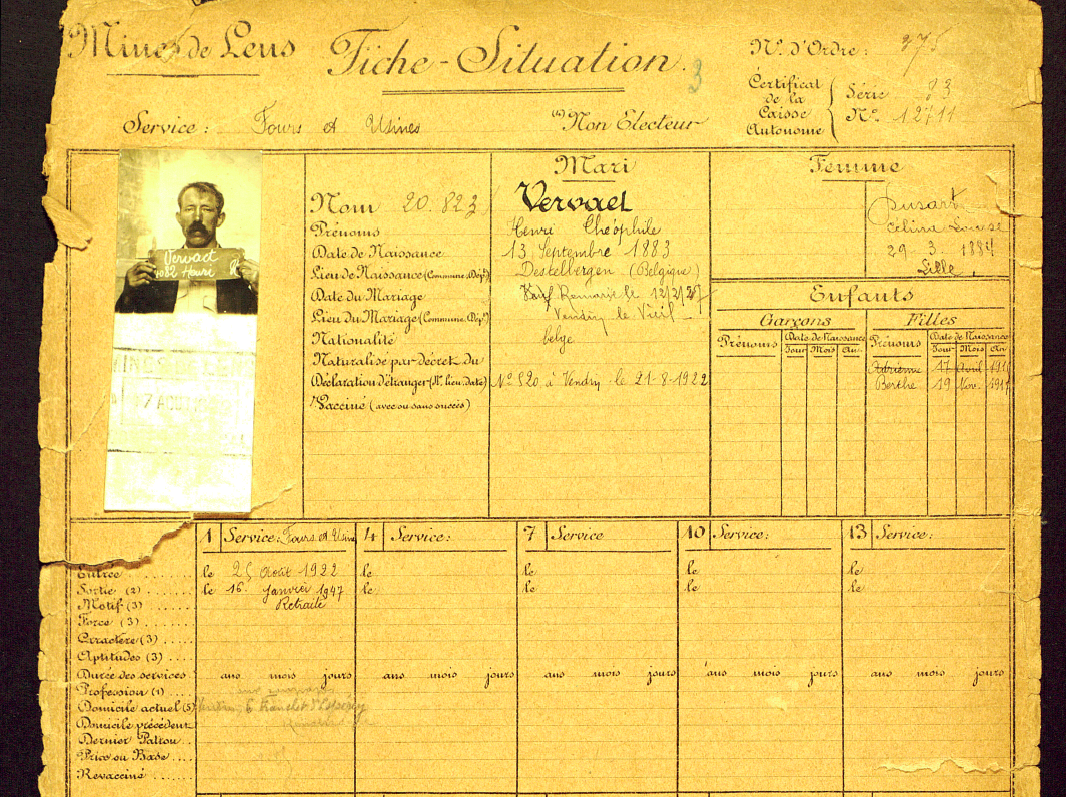 Mines de Lens
Fiche-Situation
3
N° d'Ordre: 375
Certificat de la Caisse Autonome
Série 83
N° 12711
Service: Fours et Usines
(1) Non Electeur
Vervael
4082 Henri
MINES DE LENS
Mari
Nom 20.823 Vervael
Prénoms Henri Théophile
Date de Naissance 13 Septembre 1883
Lieu de Naissance (Commune, Dépt) Destelbergen (Belgique)
Date du Mariage Veuf Remarié le 12/2/27
Lieu du Mariage (Commune, Dépt) Vendin le Vieil
Nationalité belge
Naturalisé par décret du
Déclaration d'étranger (N°, lieu, date) N° 520 à Vendin le 21-8-1922
Vacciné (avec ou sans succès)
Femme
Dusart
Célina Louise
29 3. 1884
Lille
Enfants
Garçons Filles
Prénoms Date de Naissance Prénoms Date de Naissance
Jour Mois An Jour Mois An
Adrienne 17 Avril
Berthe 19 Nov. 1911
1 Service: Fours et Usine 4 Service: 7 Service 10 Service: 13 Service:
Entrée le 25 Août 1922 le le le le
Sortie (2) le 16. Janvier 1947 le le le le
Motif (3) Retraite
Force (3)
Caractère (3)
Aptitudes (3)
Durée des services ans mois jours ans mois jours ans mois jours ans mois jours ans mois jours
Profession (1)
Domicile actuel (5)
Domicile précédent
Dernier Patron
Prix ou Base
Revacciné